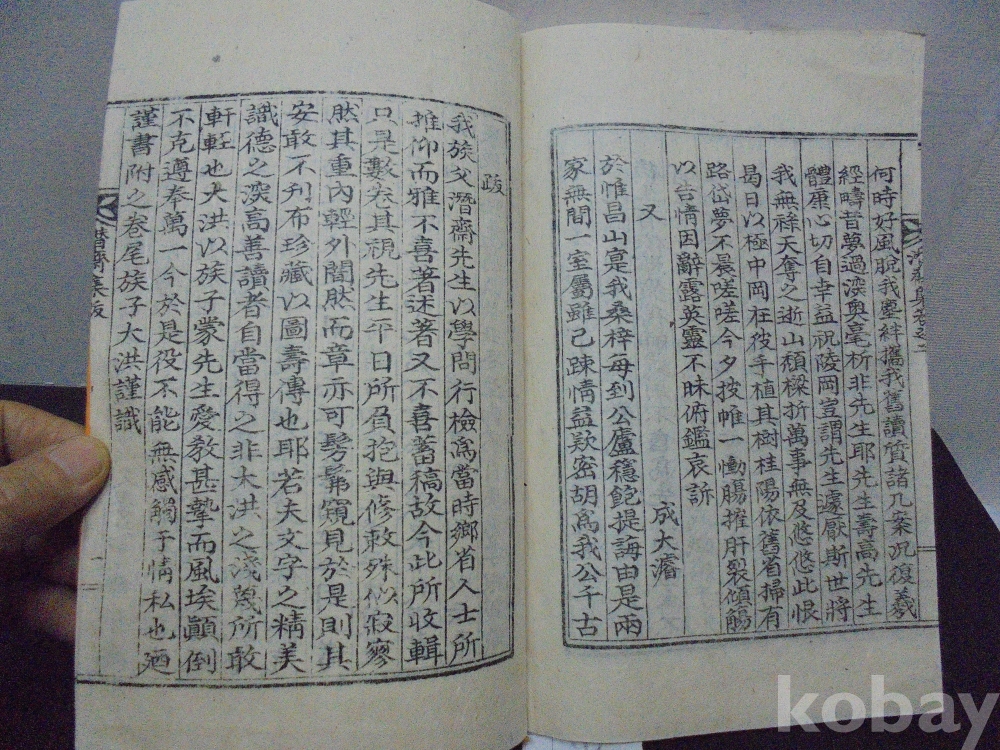 何時好風脫我塵絆攜我舊讀質諸几案況復羲
經疇昔夢過深奧毫析非先生耶先生壽高先生
體康心切自幸益祝陵岡豈謂先生遽厭斯世將
我無祿天奪之逝山頹樑折萬事無及悠悠此恨
曷日以極中岡在彼手植其樹桂陽依舊省掃有
路岱夢不晨嗟嗟今夕按帷一慟腸摧肝裂傾觴
以告情因辭露英靈不昧俯鑑哀訴
又
成大
於惟昌山寔我桑梓每到公廬穩飽提誨由是兩
家無間一室屬雖已踈情益款密胡爲我公千古
跋
我族父潛齋先生以學問行檢爲當時鄉省人士所
推仰而雅不喜著述著又不喜蓄稿故今此所收輯
只是數卷其視先生平日所負抱與修敕殊似寂寥
然其重內輕外闇然而章亦可髣髴窺見於是則其
安敢不刊布珍藏以圖壽傳也耶若夫文字之精美
識德之深高善讀者自當得之非大洪之淺識所敢
軒輊也大洪以族子蒙先生愛敎甚摯而風埃顚倒
不克遵奉萬一今於是役不能無感觸于情私也迺
謹書附之卷尾族子大洪謹識
潛齋集跋
一
kobay